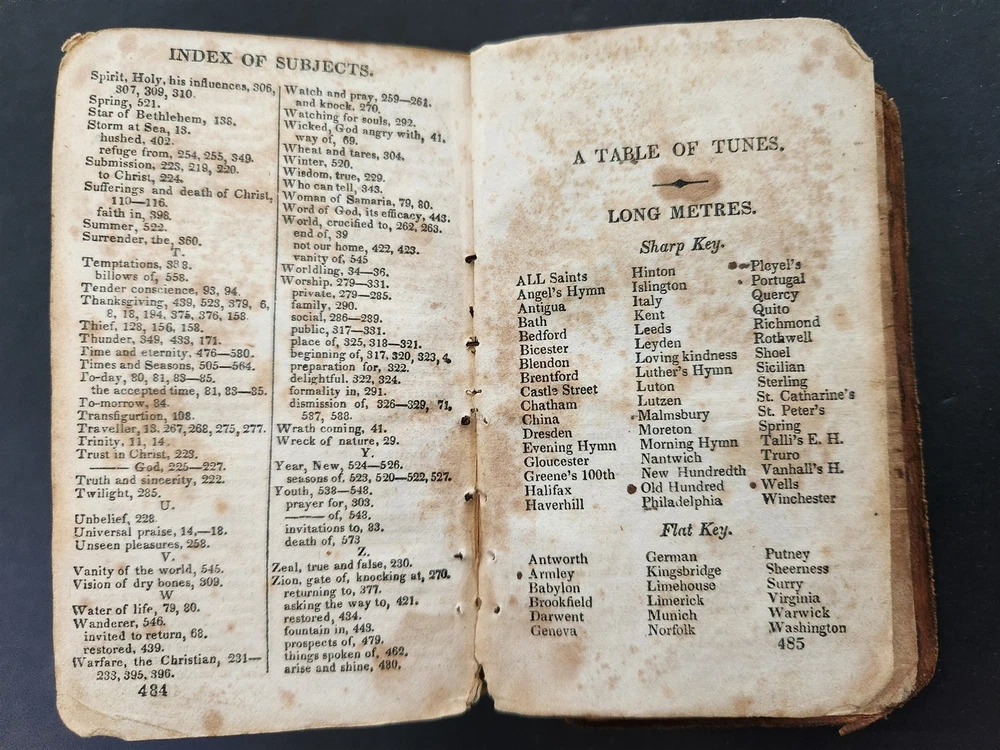 INDEX OF SUBJECTS.
Spirit, Holy, his influences, 306,
307, 309, 310.
Spring, 521.
Star of Bethlehem, 138.
Storm at Sea, 13.
hushed, 402.
refuge from, 254, 255, 349.
Submission, 223, 219, 220.
to Christ, 224.
Sufferings and death of Christ,
110—116.
faith in, 398.
Summer, 522.
Surrender, the, 360.
T.
Temptations, 338.
billows of, 558.
Tender conscience, 93, 94.
Thanksgiving, 439, 523, 379, 6,
8, 18, 194, 375, 376, 158.
Thief, 128, 156, 158.
Thunder, 349, 433, 171.
Time and eternity, 476—580.
Times and Seasons, 505—564.
To-day, 80, 81, 83—85.
the accepted time, 81, 83—85.
To-morrow, 84.
Transfigurtion, 108.
Traveller, 13, 267, 268, 275, 277.
Trinity, 11, 14.
Trust in Christ, 223.
—— God, 225—227.
Truth and sincerity, 222.
Twilight, 285.
U.
Unbelief, 228.
Universal praise, 14,—18.
Unseen pleasures, 258.
V.
Vanity of the world, 545.
Vision of dry bones, 309.
W
Water of life, 79, 80.
Wanderer, 546.
invited to return, 68.
restored, 439.
Warfare, the Christian, 231—
233, 395, 396.
484
Watch and pray, 259—261.
and knock, 270.
Watching for souls, 292.
Wicked, God angry with, 41.
way of, 69.
Wheat and tares, 304.
Winter, 520.
Wisdom, true, 229.
Who can tell, 343.
Woman of Samaria, 79, 80.
Word of God, its efficacy, 443.
World, crucified to, 262, 263.
end of, 39
not our home, 422, 423.
vanity of, 545
Worldling, 34—36.
Worship, 279—331.
private, 279—285.
family, 290.
social, 286—289.
public, 317—331.
place of, 325, 318—321.
beginning of, 317, 320, 323, 4.
preparation for, 322.
delightful, 322, 324.
formality in, 291.
dismission of, 326—329, 71,
587, 588.
Wrath coming, 41.
Wreck of nature, 29.
Y.
Year, New, 524—526.
seasons of, 523, 520—522, 527.
Youth, 538—548.
prayer for, 303.
—— of, 548.
invitations to, 83.
death of, 573
Z.
Zeal, true and false, 230.
Zion, gate of, knocking at, 270.
returning to, 377.
asking the way to, 421.
restored, 434.
fountain in, 443.
prospects of, 479.
things spoken of, 462.
arise and shine, 480.
A TABLE OF TUNES.
LONG METRES.
Sharp Key.
ALL Saints
Angel's Hymn
Antigua
Bath
Bedford
Bicester
Blendon
Brentford
Castle Street
Chatham
China
Dresden
Evening Hymn
Gloucester
Greene's 100th
Halifax
Haverhill
Hinton
Islington
Italy
Kent
Leeds
Leyden
Loving kindness
Luther's Hymn
Luton
Lutzen
Malmsbury
Moreton
Morning Hymn
Nantwich
New Hundredth
Old Hundred
Philadelphia
Pleyel's
Portugal
Quercy
Quito
Richmond
Rothwell
Shoel
Sicilian
Sterling
St. Catharine's
St. Peter's
Spring
Talli's E. H.
Truro
Vanhall's H.
Wells
Winchester
Flat Key.
Antworth
Armley
Babylon
Brookfield
Darwent
Geneva
German
Kingsbridge
Limehouse
Limerick
Munich
Norfolk
Putney
Sheerness
Surry
Virginia
Warwick
Washington
485